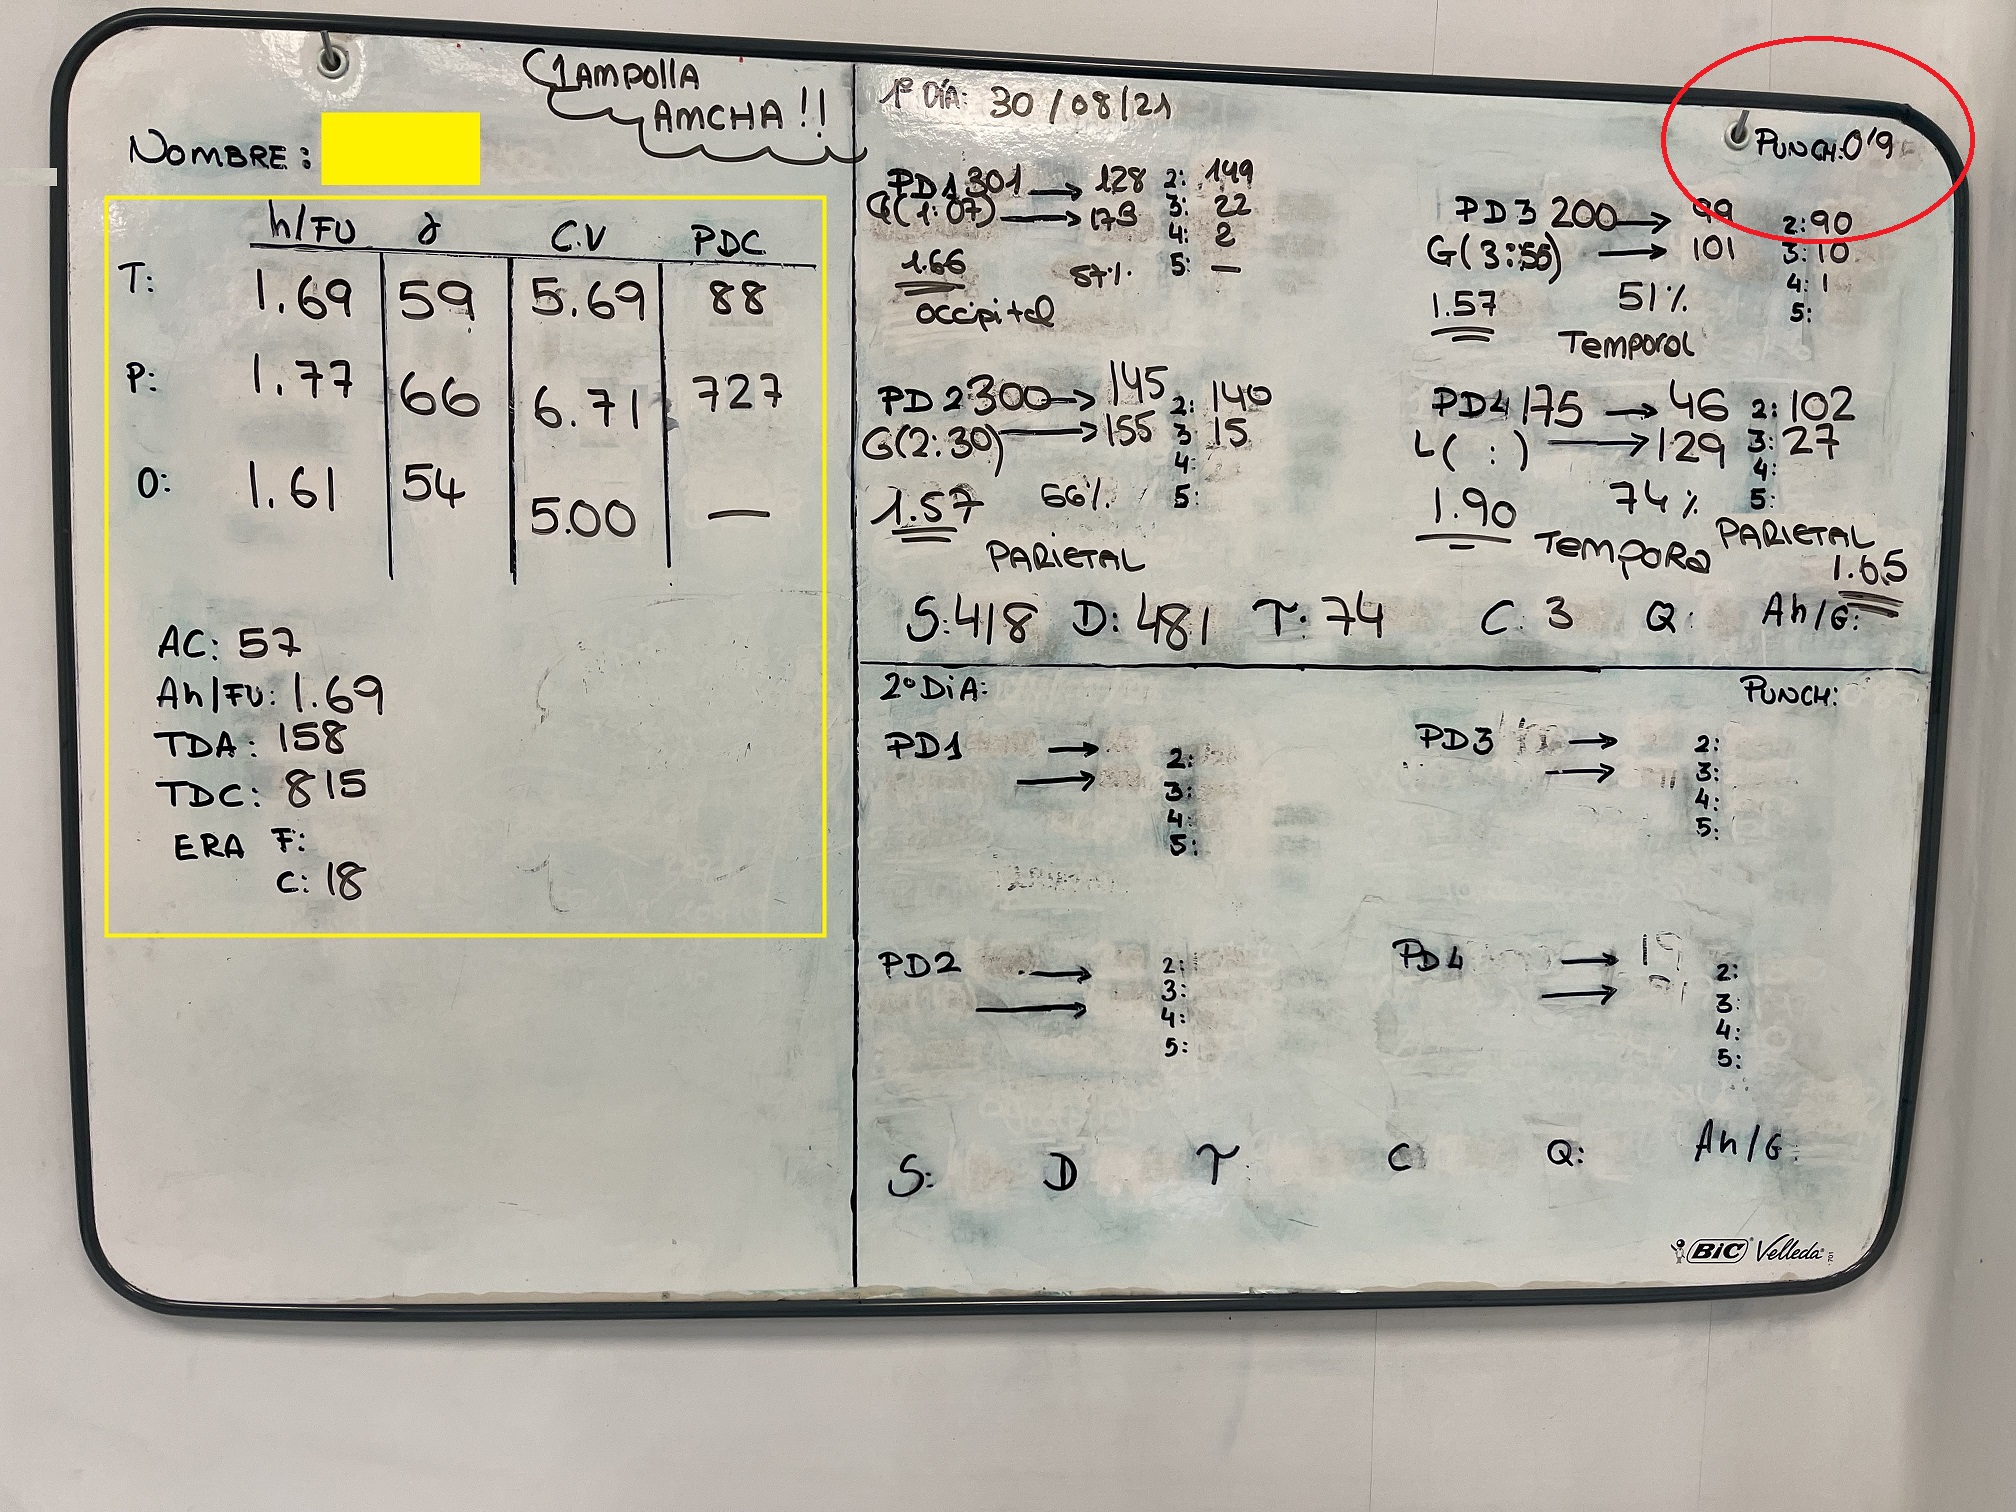 1 AMPOLLA
AMCHA!!
NOMBRE:
h/FU ४ C.V PDC
T: 1.69 59 5.69 88
P: 1.77 66 6.71 727
O: 1.61 54 5.00 —
AC: 57
Ah/FU: 1.69
TDA: 158
TDC: 815
ERA F:
C: 18
1º DÍA: 30/08/21
PUNCH: 0'9
PD1 301 → 128 2: 149
G(1:07) → 173 3: 22
4: 2
1.66 57% 5: —
occipital
PD3 200 → 99 2: 90
G(3:56) → 101 3: 10
4: 1
1.57 51% 5:
Temporal
PD2 300 → 145 2: 140
G(2:30) → 155 3 15
4:
1.57 66% 5:
PARIETAL
PD4 175 → 46 2: 102
L( : ) → 129 3: 27
4:
1.90 74% 5:
Tempora PARIETAL
1.65
S: 418 D: 481 T: 74 C: 3 Q: Ah/G:
2º DIA: PUNCH:
PD1 → 2:
→ 3:
4:
5:
PD3 → 2:
→ 3:
4:
5:
PD2 → 2:
→ 3:
4:
5:
PD4 → 2:
→ 3:
4:
5:
S: D T C Q: Ah/G:
BIC Velleda